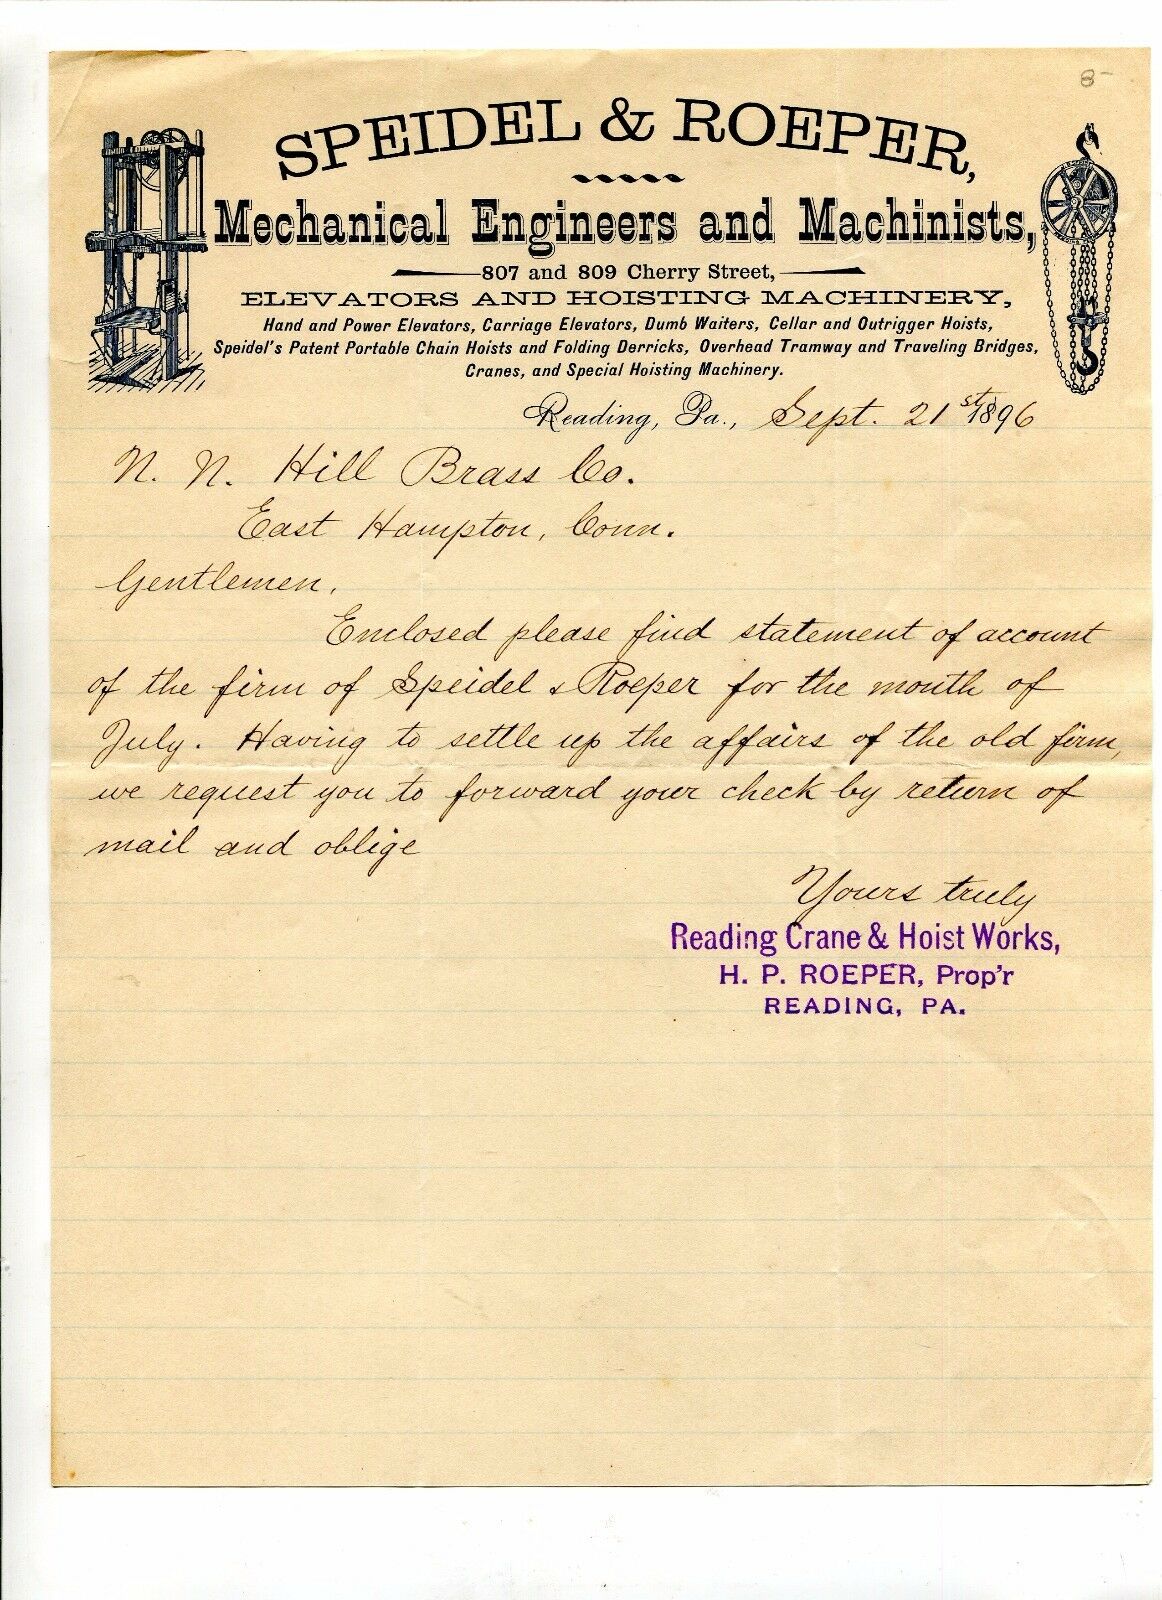 8-
SPEIDEL & ROEPER,
Mechanical Engineers and Machinists,
807 and 809 Cherry Street,
ELEVATORS AND HOISTING MACHINERY,
Hand and Power Elevators, Carriage Elevators, Dumb Waiters, Cellar and Outrigger Hoists,
Speidel's Patent Portable Chain Hoists and Folding Derricks, Overhead Tramway and Traveling Bridges,
Cranes, and Special Hoisting Machinery.
Reading, Pa., Sept. 21st 1896
N. N. Hill Brass Co.
East Hampton, Conn.
Gentlemen,
Enclosed please find statement of account
of the firm of Speidel & Roeper for the month of
July. Having to settle up the affairs of the old firm,
we request you to forward your check by return of
mail and oblige
Yours truly
Reading Crane & Hoist Works,
H. P. ROEPER, Prop'r
READING, PA.